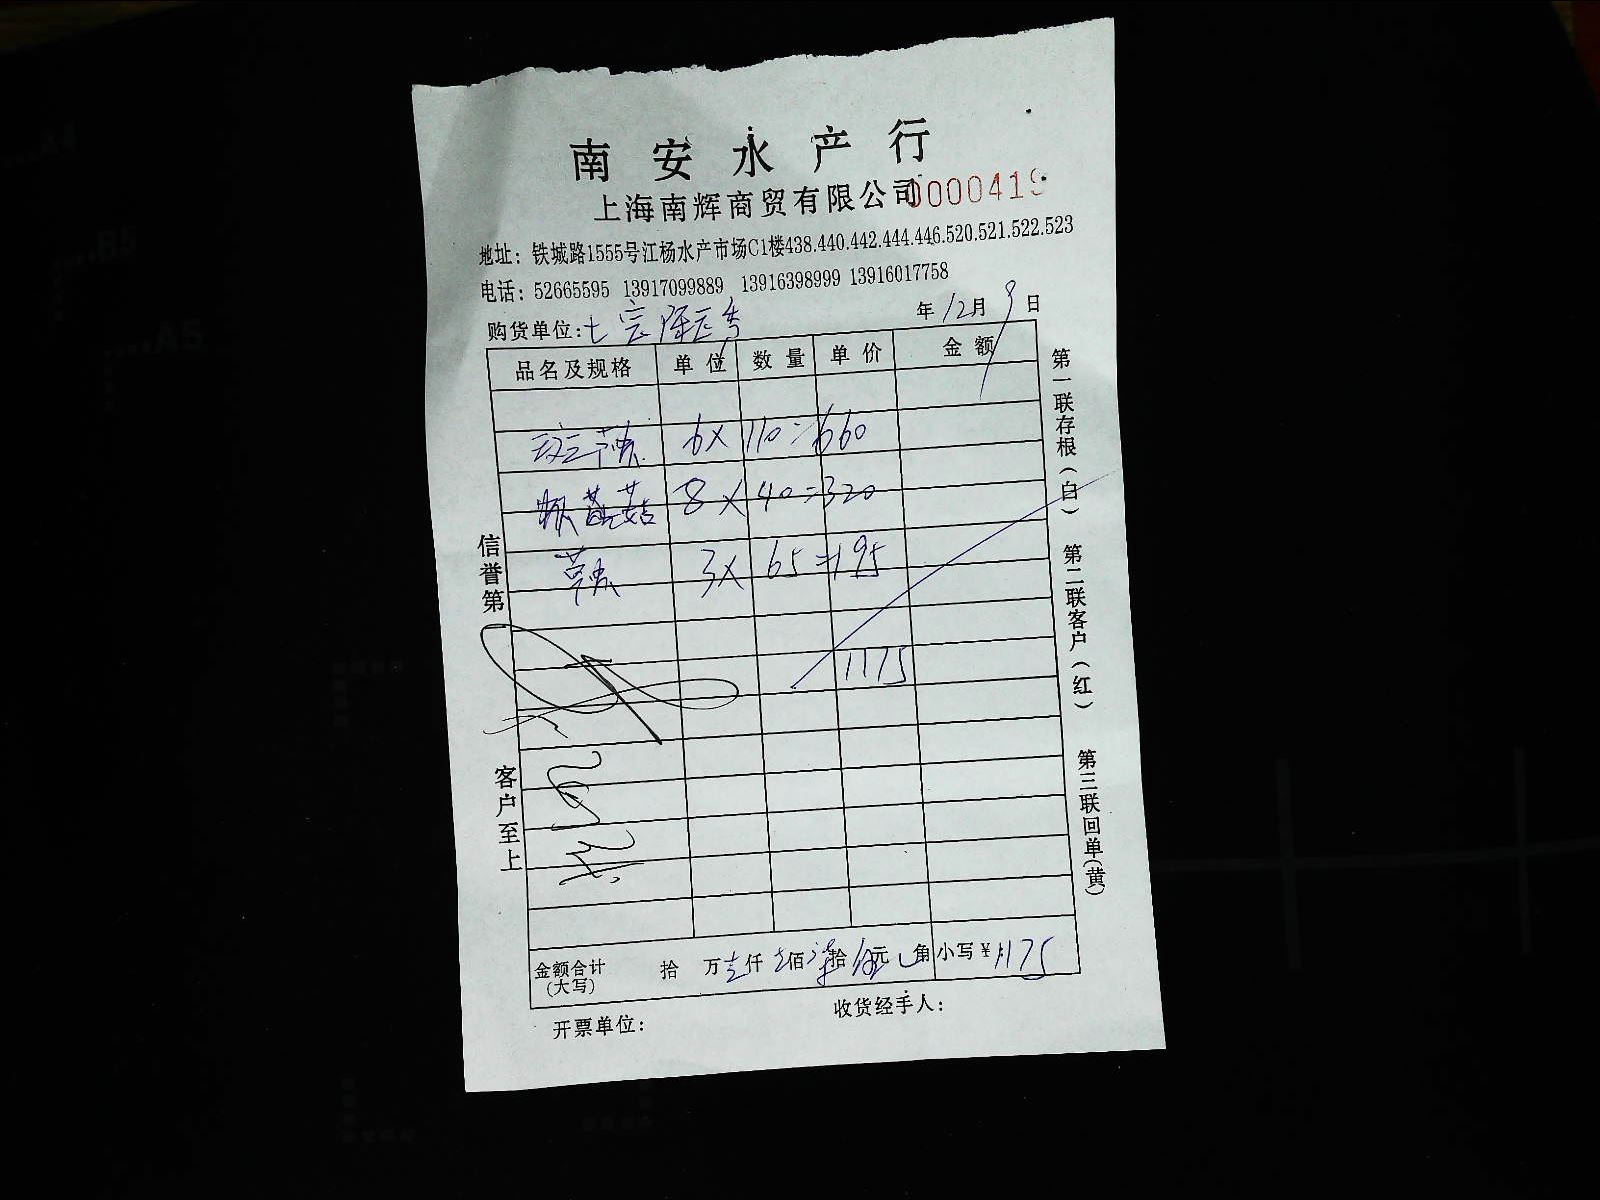 南安水产行
上海南辉商贸有限公司 0000419
地址：铁城路1555号江杨水产市场C1楼438.440.442.444.446.520.521.522.523
电话：52665595 13917099889 13916398999 13916017758
购货单位: 年12月9日
品名及规格 单位 数量 单价 金额
6× 110=660
8× 40=320
3× 65=195
1175
金额合计(大写) 拾 万壹仟壹佰柒拾伍元 角 小写¥1175
开票单位： 收货经手人：
信誉第
客户至上
第一联存根（白）
第二联客户（红）
第三联回单(黄)